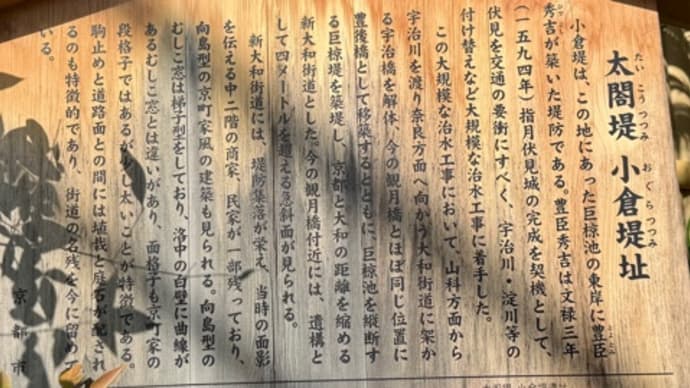 太閤堤 小倉堤址
たいこうつつみ おぐらつつみ
小倉堤は、この地にあった巨椋池の東岸に豊臣
とよとみ
秀吉が築いた堤防である。豊臣秀吉は文禄三年
(一五九四年)指月伏見城の完成を契機として、
伏見を交通の要衝にすべく、宇治川・淀川等の
付け替えなど大規模な治水工事に着手した。
この大規模な治水工事において、山科方面から
宇治川を渡り奈良方面へ向かう大和街道に架か
る宇治橋を解体、今の観月橋とほぼ同じ位置に
豊後橋として移築するとともに、巨椋池を縦断す
る巨椋堤を築堤し、京都と大和の距離を縮める
新大和街道とした。今の観月橋付近には、遺構と
して四メートルを超える急斜面が見られる。
新大和街道には、堤防集落が栄え、当時の面影
を伝える中二階の商家、民家が一部残っており、
向島型の京町家風の建築も見られる。向島型の
むしこ窓は梯子型をしており、洛中の白壁に曲線が
あるむしこ窓とは違いがあり、面格子も京町家の
段格子ではあるが少し太いことが特徴である。
駒止めと道路面との間には埴栽と庭石が配され
るのも特徴的であり、街道の名残を今に留めて
いる。
京都市